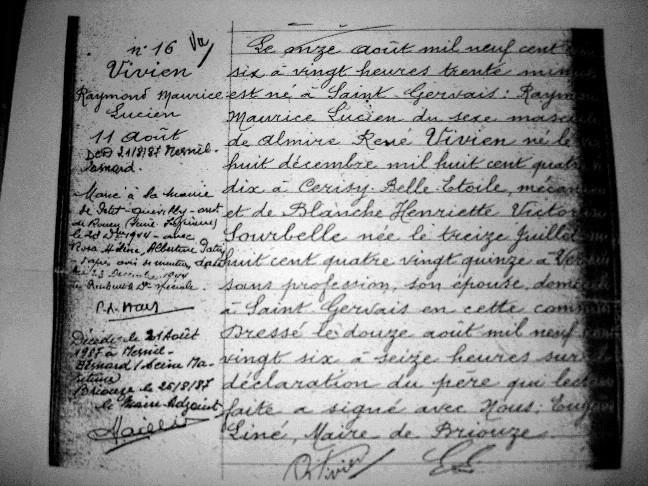 n° 16 Vu
Vivien
Raymond Maurice
Lucien
11 Août
DCD 21/8/87 Mesnil-
Esnard.
Marié à la mairie
de Petit-Quevilly
de Rouen (Seine Inférieure)
le 1944 - avec
Rosa Hélène, Albertine
1944
Décédé le 21 Août
1987 à Mesnil-
Esnard (Seine Ma-
ritime
Briouze le 25/8/87
le Maire Adjoint
Le onze août mil neuf cent
six à vingt heures trente minutes
est né à Saint Gervais : Raymond
Maurice Lucien du sexe masculin
de Almire René Vivien né le
huit décembre mil huit cent quatre
dix à Cerisy Belle Etoile, mécanicien
et de Blanche Henriette
Sourbelle née le treize Juillet
huit cent quatre vingt quinze à
sans profession, son épouse,
à Saint Gervais en cette commune
Dressé le douze août mil neuf cent
vingt six à seize heures sur la
déclaration du père qui lecture
faite a signé avec Nous : Eugène
Liné, Maire de Briouze
Vivien